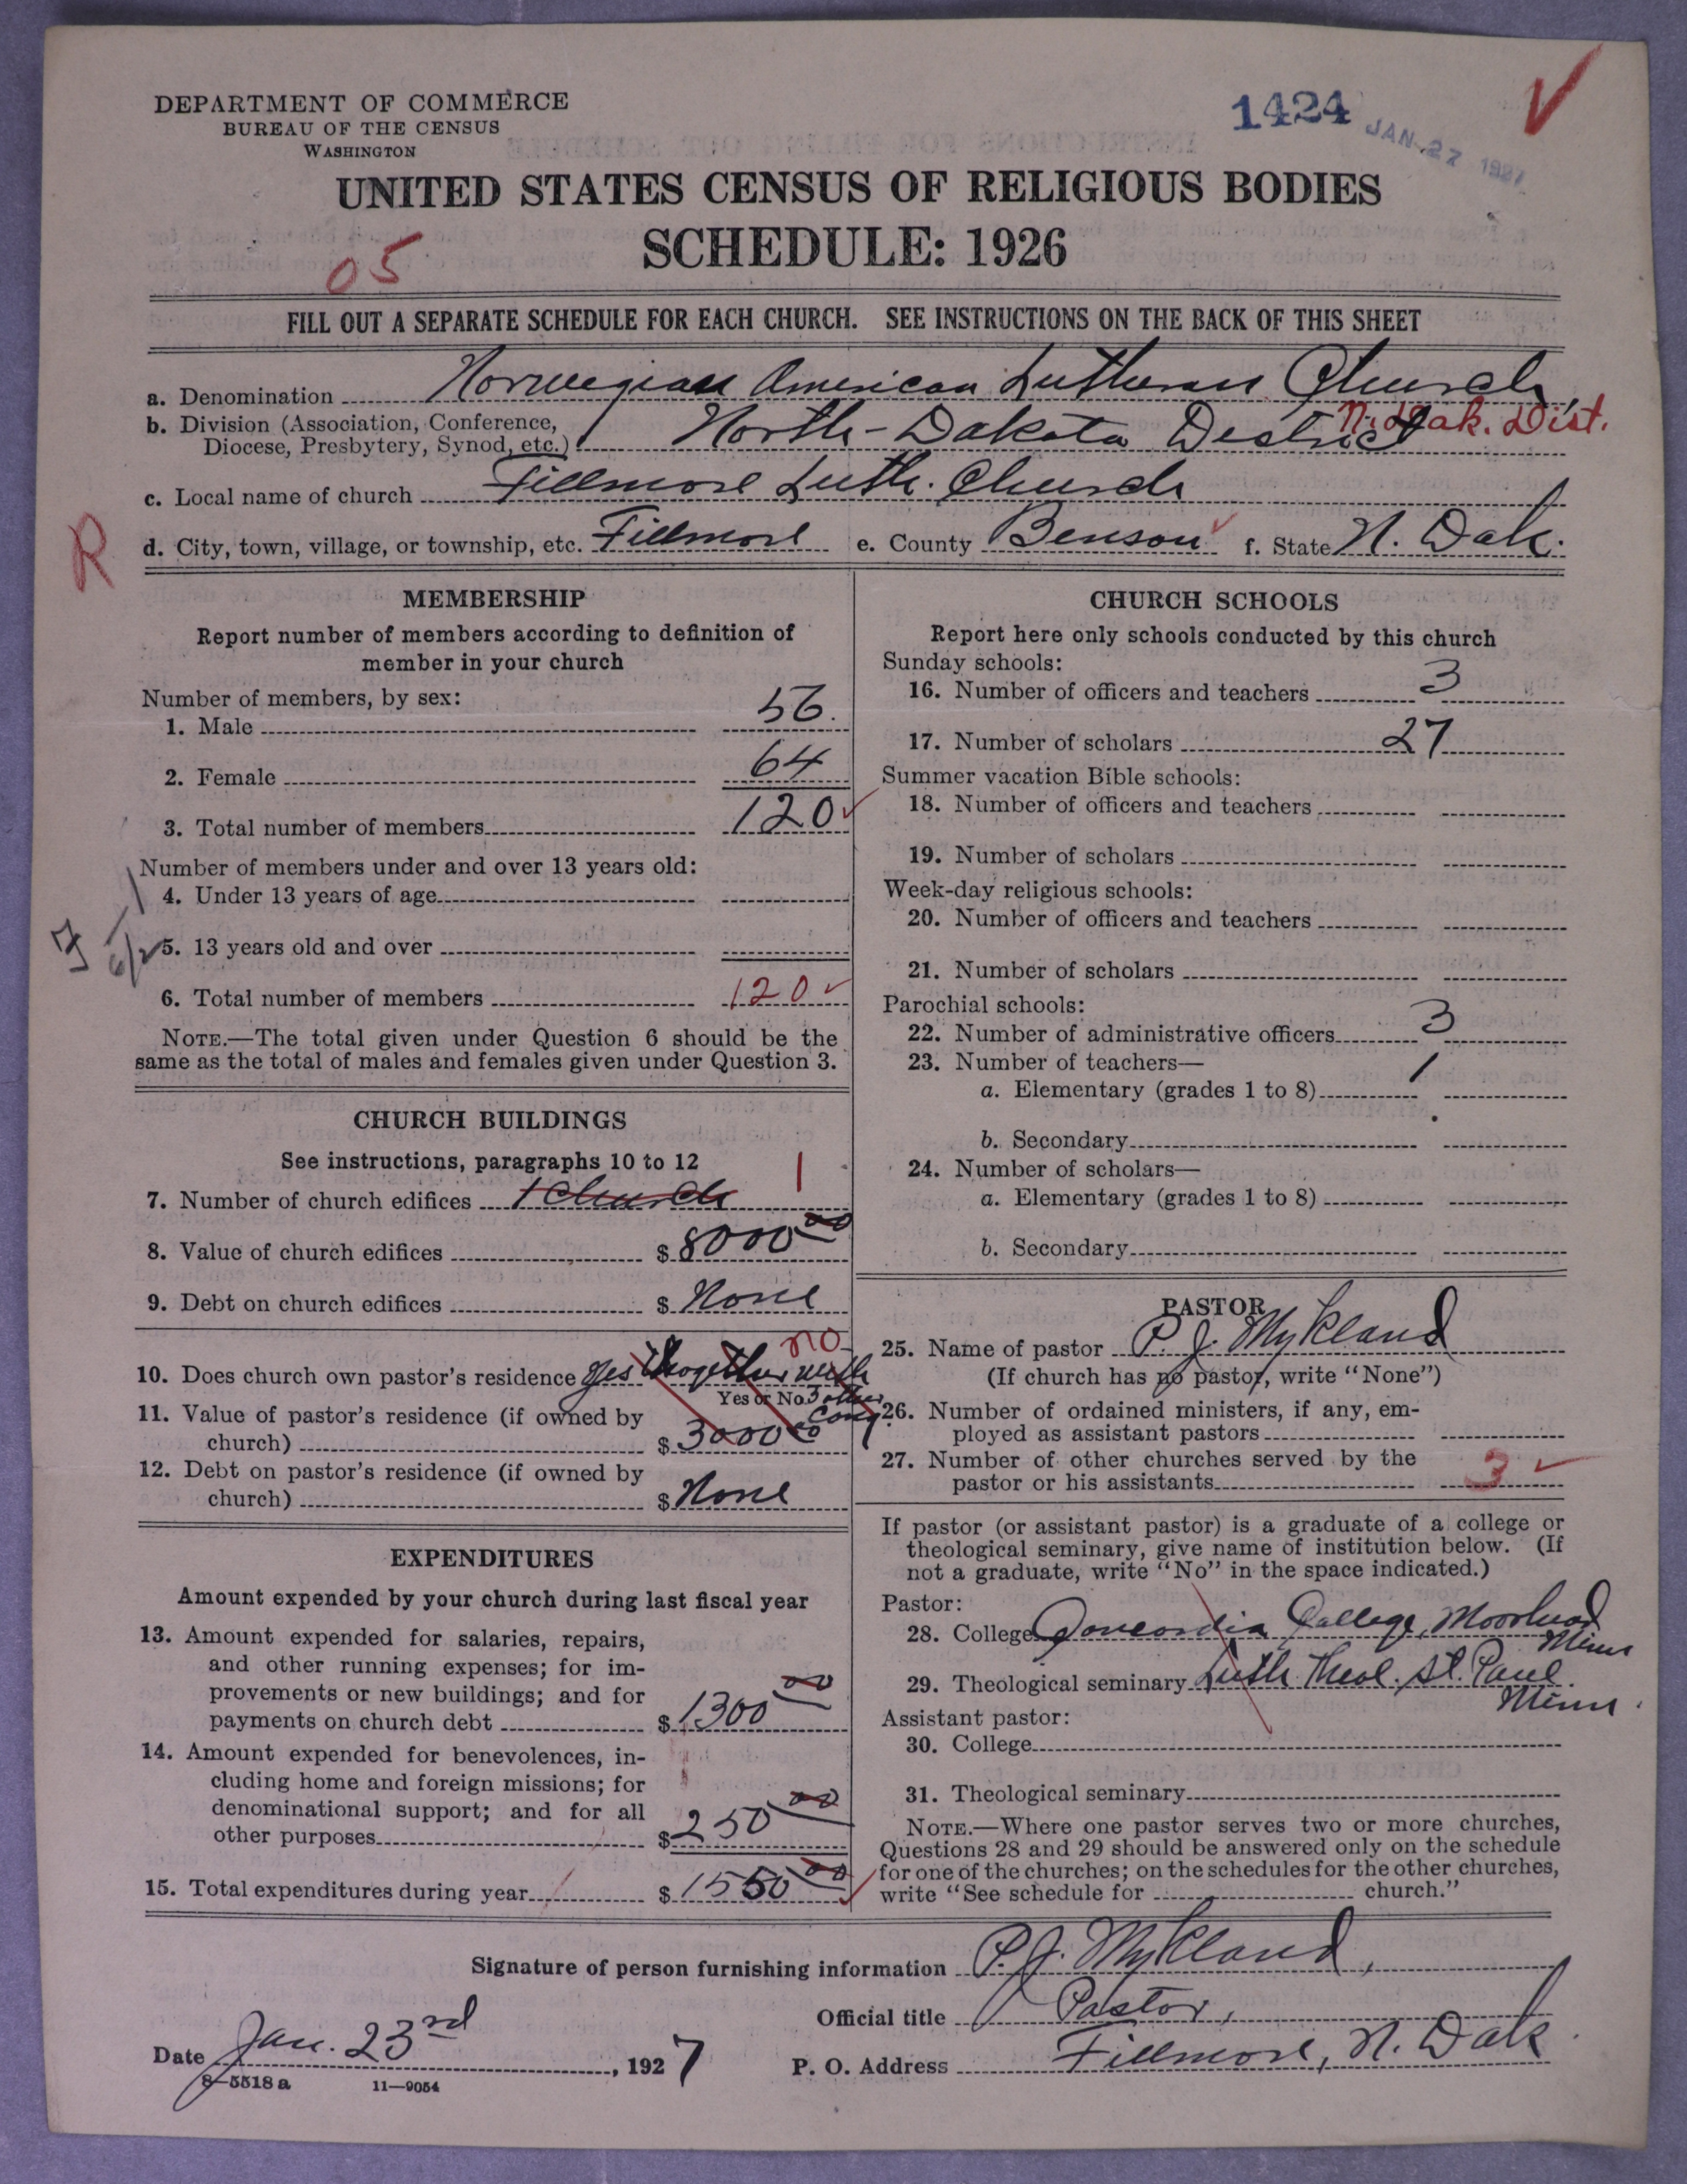 DEPARTMENT OF COMMERCE
BUREAU OF THE CENSUS
WASHINGTON
1424
JAN 27 1927
UNITED STATES CENSUS OF RELIGIOUS BODIES
SCHEDULE: 1926
05
FILL OUT A SEPARATE SCHEDULE FOR EACH CHURCH. SEE INSTRUCTIONS ON THE BACK OF THIS SHEET
a. Denomination Norwegian American Lutheran Church
b. Division (Association, Conference,
Diocese, Presbytery, Synod, etc.) North-Dakota District N. Dak. Dist.
c. Local name of church Fillmore Luth. Church
R
d. City, town, village, or township, etc. Fillmore e. County Benson f. State N. Dak.
MEMBERSHIP
Report number of members according to definition of
member in your church
Number of members, by sex:
1. Male 56.
2. Female 64
3. Total number of members 120
Number of members under and over 13 years old:
4. Under 13 years of age
5. 13 years old and over
6. Total number of members 120
NOTE.—The total given under Question 6 should be the
same as the total of males and females given under Question 3.
CHURCH BUILDINGS
See instructions, paragraphs 10 to 12
7. Number of church edifices 1 Church 1
8. Value of church edifices $ 8000 00
9. Debt on church edifices $ None
10. Does church own pastor's residence Yes thogether with no
Yes or No 3 other
Cong
11. Value of pastor's residence (if owned by
church) $ 3000 00
12. Debt on pastor's residence (if owned by
church) $ None
EXPENDITURES
Amount expended by your church during last fiscal year
13. Amount expended for salaries, repairs,
and other running expenses; for im-
provements or new buildings; and for
payments on church debt $ 1300 00
14. Amount expended for benevolences, in-
cluding home and foreign missions; for
denominational support; and for all
other purposes $ 250 00
15. Total expenditures during year $ 1550 00
CHURCH SCHOOLS
Report here only schools conducted by this church
Sunday schools:
16. Number of officers and teachers 3
17. Number of scholars 27
Summer vacation Bible schools:
18. Number of officers and teachers
19. Number of scholars
Week-day religious schools:
20. Number of officers and teachers
21. Number of scholars
Parochial schools:
22. Number of administrative officers 3
23. Number of teachers—
a. Elementary (grades 1 to 8) 1
b. Secondary
24. Number of scholars—
a. Elementary (grades 1 to 8)
b. Secondary
PASTOR
25. Name of pastor P. J. Mykland
(If church has no pastor, write "None")
26. Number of ordained ministers, if any, em-
ployed as assistant pastors
27. Number of other churches served by the
pastor or his assistants 3
If pastor (or assistant pastor) is a graduate of a college or
theological seminary, give name of institution below. (If
not a graduate, write "No" in the space indicated.)
Pastor:
28. College Concordia College, Moorhead
Minn
29. Theological seminary Luth Theol. St. Paul
Minn.
Assistant pastor:
30. College
31. Theological seminary
NOTE.—Where one pastor serves two or more churches,
Questions 28 and 29 should be answered only on the schedule
for one of the churches; on the schedules for the other churches,
write "See schedule for church."
Signature of person furnishing information P. J. Mykland,
Official title Pastor,
Date Jan. 23rd, 1927 P. O. Address Fillmore, N. Dak.
8—5518 a 11—9054